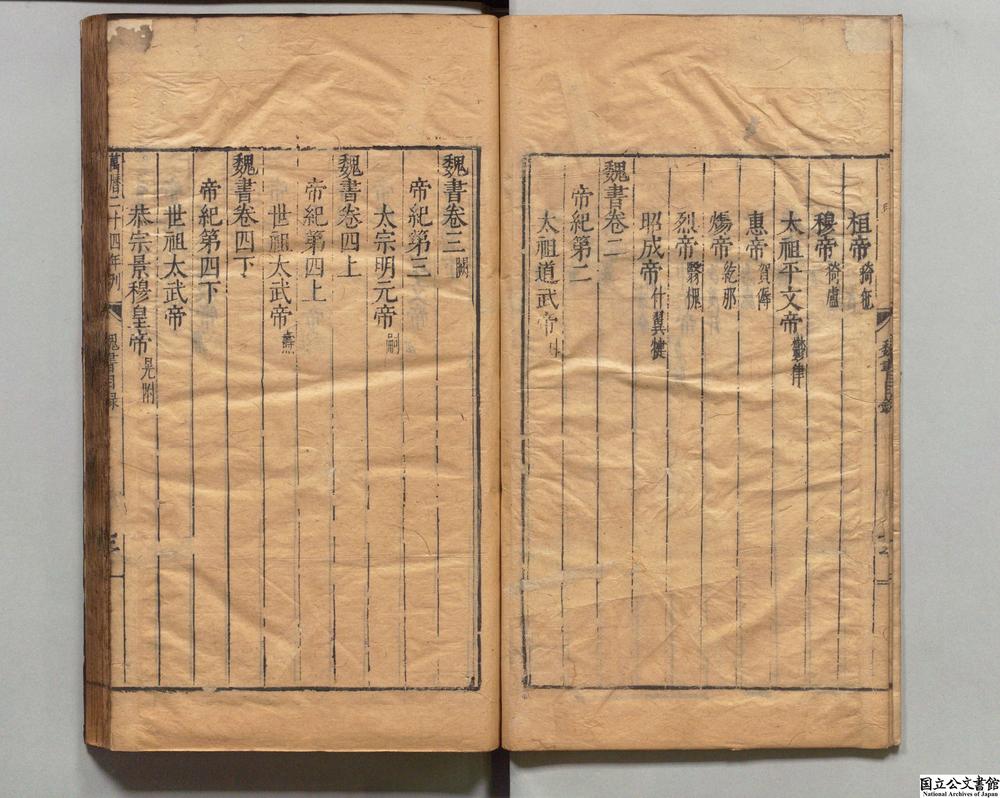 桓帝猗㐌
穆帝猗盧
太祖平文帝鬱律
惠帝賀傉
煬帝紇那
烈帝翳槐
昭成帝什翼犍
魏書卷二
帝紀第二
太祖道武帝
魏書目錄
魏書卷三闕
帝紀第三
太宗明元帝嗣
魏書卷四上
帝紀第四上
世祖太武帝燾
魏書卷四下
帝紀第四下
世祖太武帝
恭宗景穆皇帝晃附
萬曆二十四年刊
魏書目錄
三
国立公文書館
National Archives of Japan